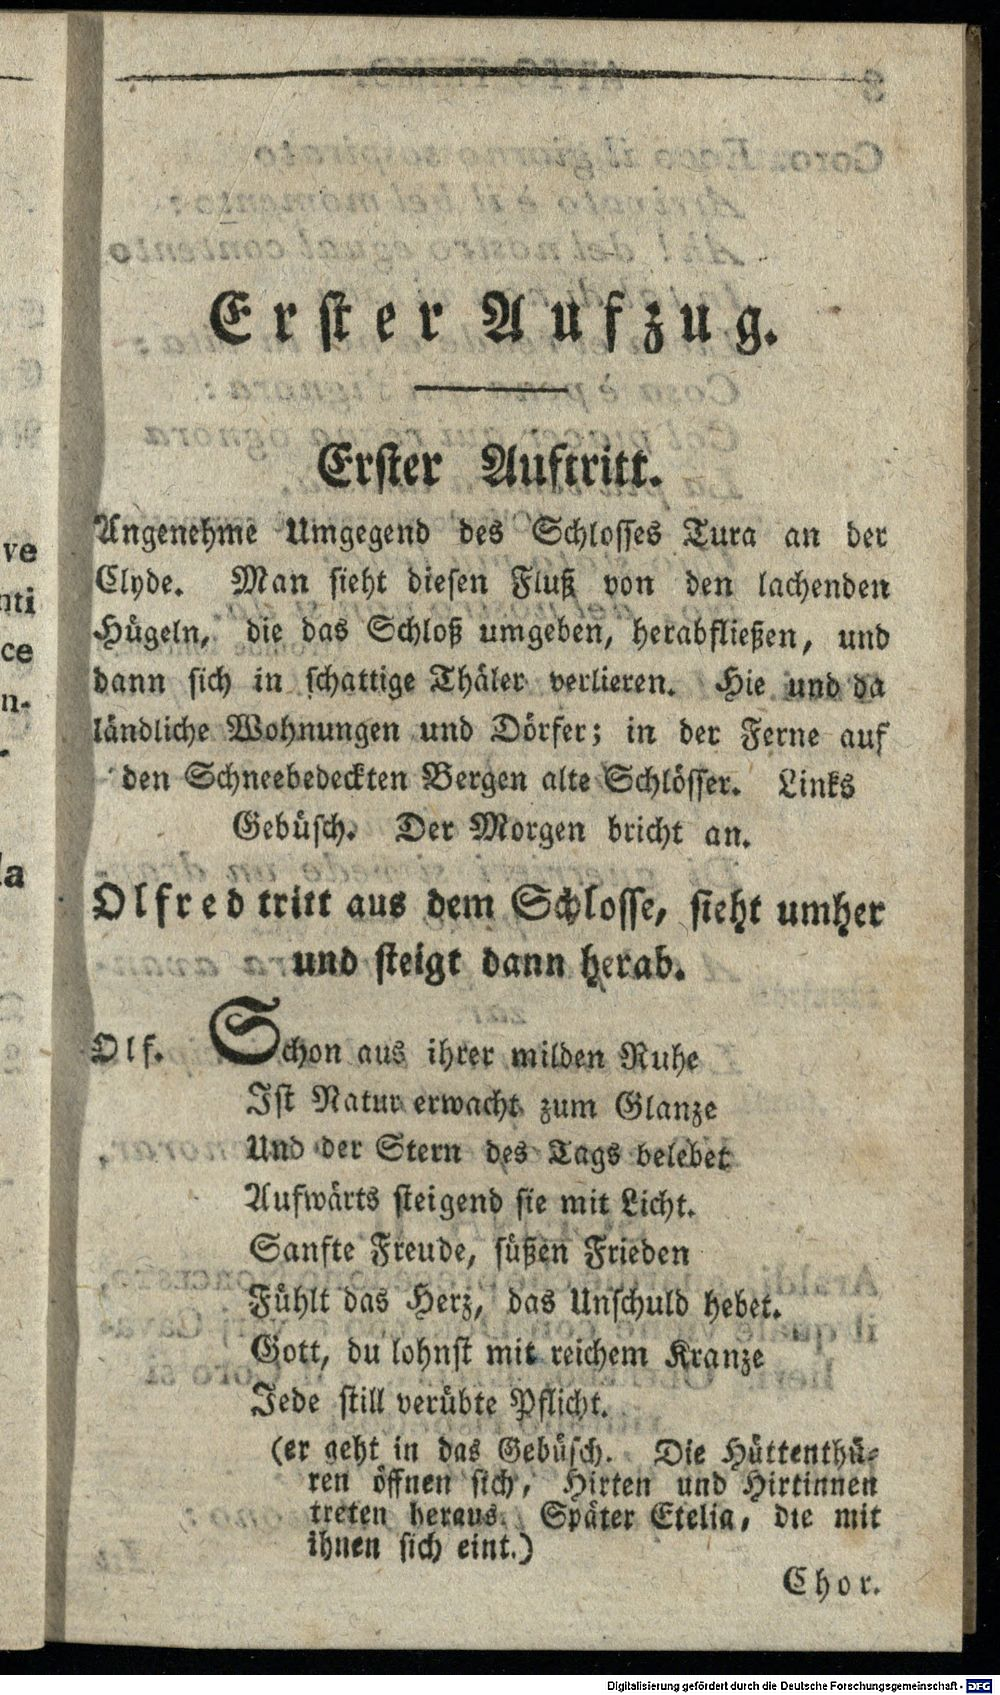 Erster Aufzug.
Erster Auftritt.
Angenehme Umgegend des Schlosses Tura an der
Clyde. Man sieht diesen Fluß von den lachenden
Hügeln, die das Schloß umgeben, herabfließen, und
dann sich in schattige Thäler verlieren. Hie und da
ländliche Wohnungen und Dörfer; in der Ferne auf
den Schneebedeckten Bergen alte Schlösser. Links
Gebüsch. Der Morgen bricht an.
Olfred tritt aus dem Schlosse, sieht umher
und steigt dann herab.
Olf. Schon aus ihrer milden Ruhe
Ist Natur erwacht zum Glanze
Und der Stern des Tags belebet
Aufwärts steigend sie mit Licht.
Sanfte Freude, süßen Frieden
Fühlt das Herz, das Unschuld hebet.
Gott, du lohnst mit reichem Kranze
Jede still verübte Pflicht.
(er geht in das Gebüsch. Die Hüttenthü-
ren öffnen sich, Hirten und Hirtinnen
treten heraus. Später Etelia, die mit
ihnen sich eint.)
Chor.
ve
nti
ce
n-
la
Digitalisierung gefördert durch die Deutsche Forschungsgemeinschaft - DFG